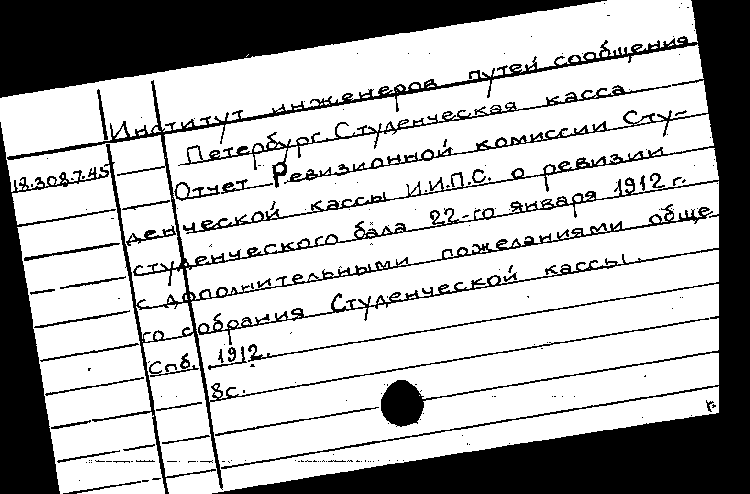 Институт инженеров путей сообщения
Петербург. Студенческая касса.
18.308.7.45
Отчет Ревизионной комиссии Сту-
денческой кассы И.И.П.С. о ревизии
студенческого бала 22-го января 1912 г.
с дополнительными пожеланиями обще
го собрания Студенческой кассы.
Спб. 1912.
8с.